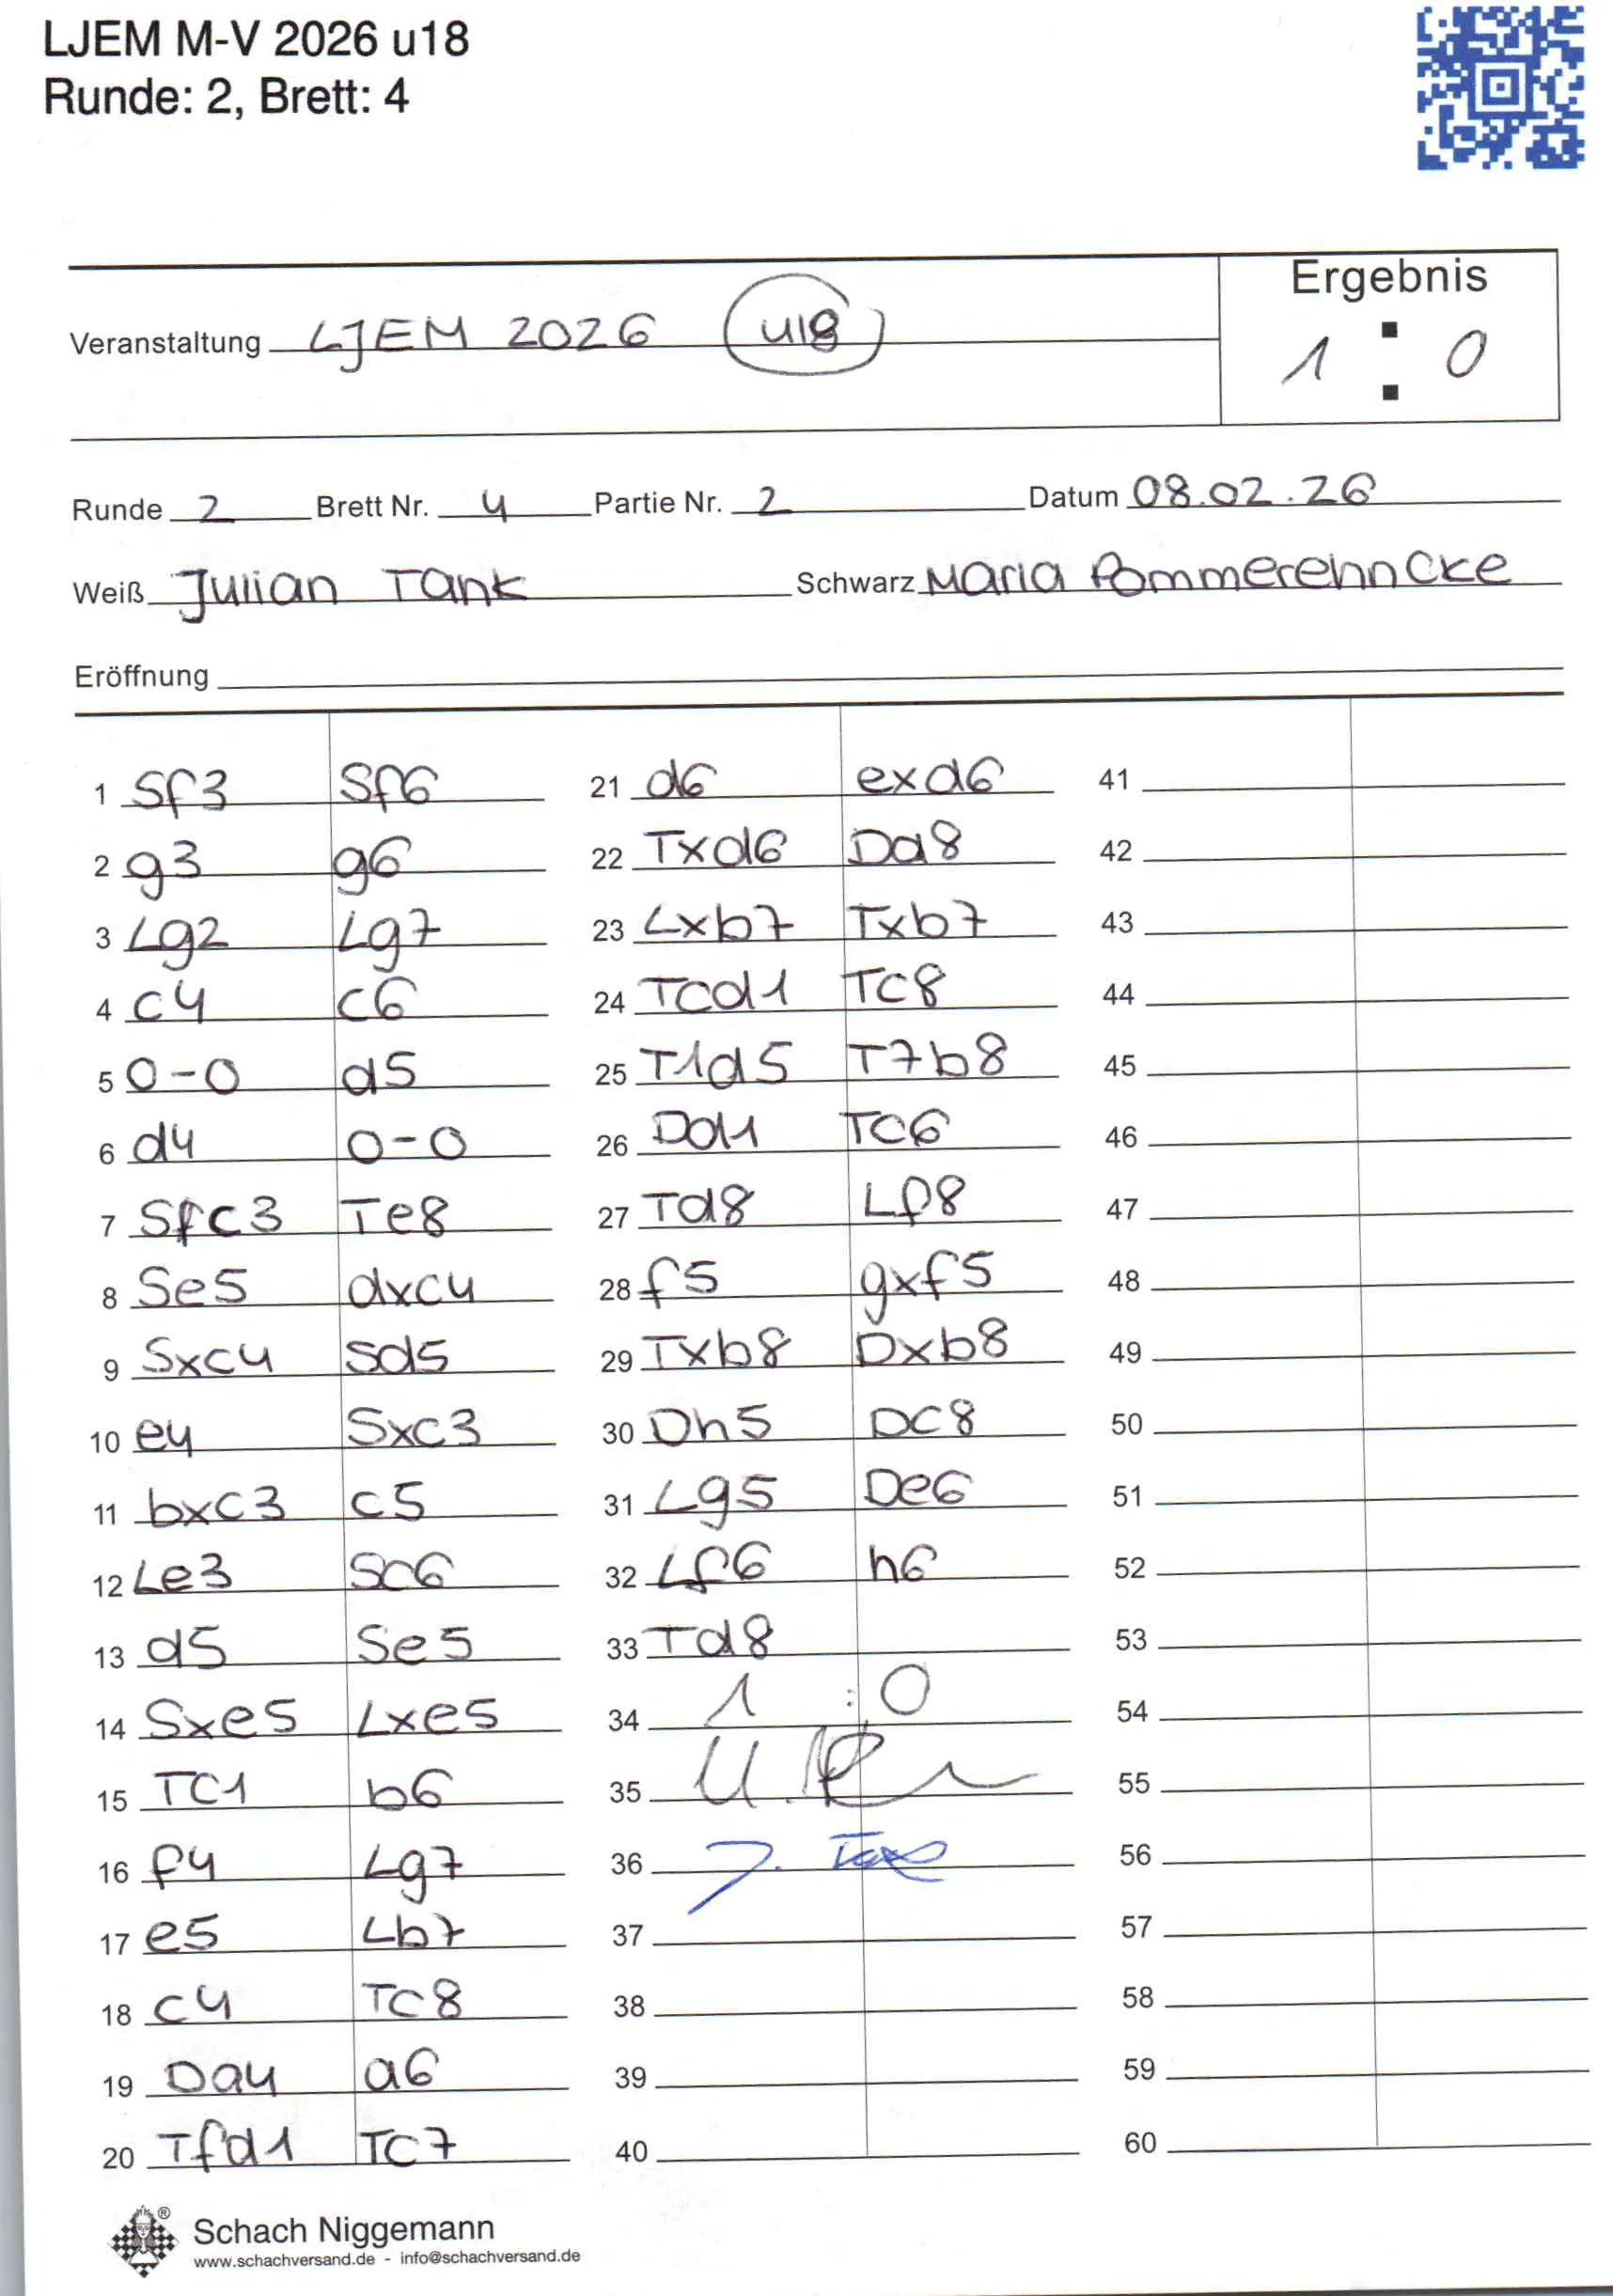 LJEM M-V 2026 u18
Runde: 2, Brett: 4
Ergebnis
Veranstaltung LJEM 2026 u18
1 : 0
Runde 2 Brett Nr. 4 Partie Nr. 2 Datum 08.02.26
Weiß Julian Tank Schwarz Maria Pommerehncke
Eröffnung
1 Sf3 Sf6
2 g3 g6
3 Lg2 Lg7
4 c4 c6
5 0-0 d5
6 d4 0-0
7 Sfc3 Te8
8 Se5 dxc4
9 Sxc4 Sd5
10 e4 Sxc3
11 bxc3 c5
12 Le3 Sc6
13 d5 Se5
14 Sxe5 Lxe5
15 TC1 b6
16 f4 Lg7
17 e5 Lb7
18 c4 TC8
19 Da4 a6
20 Tfd1 TC7
21 d6 exd6
22 Txd6 Da8
23 Lxb7 Txb7
24 Tcd1 TC8
25 T1d5 T7b8
26 Dd1 TC6
27 Td8 Lf8
28 f5 gxf5
29 Txb8 Dxb8
30 Dh5 DC8
31 Lg5 De6
32 Lf6 h6
33 Td8
34 1 : 0
35
36 J.
37
38
39
40
41
42
43
44
45
46
47
48
49
50
51
52
53
54
55
56
57
58
59
60
Schach Niggemann
www.schachversand.de - info@schachversand.de